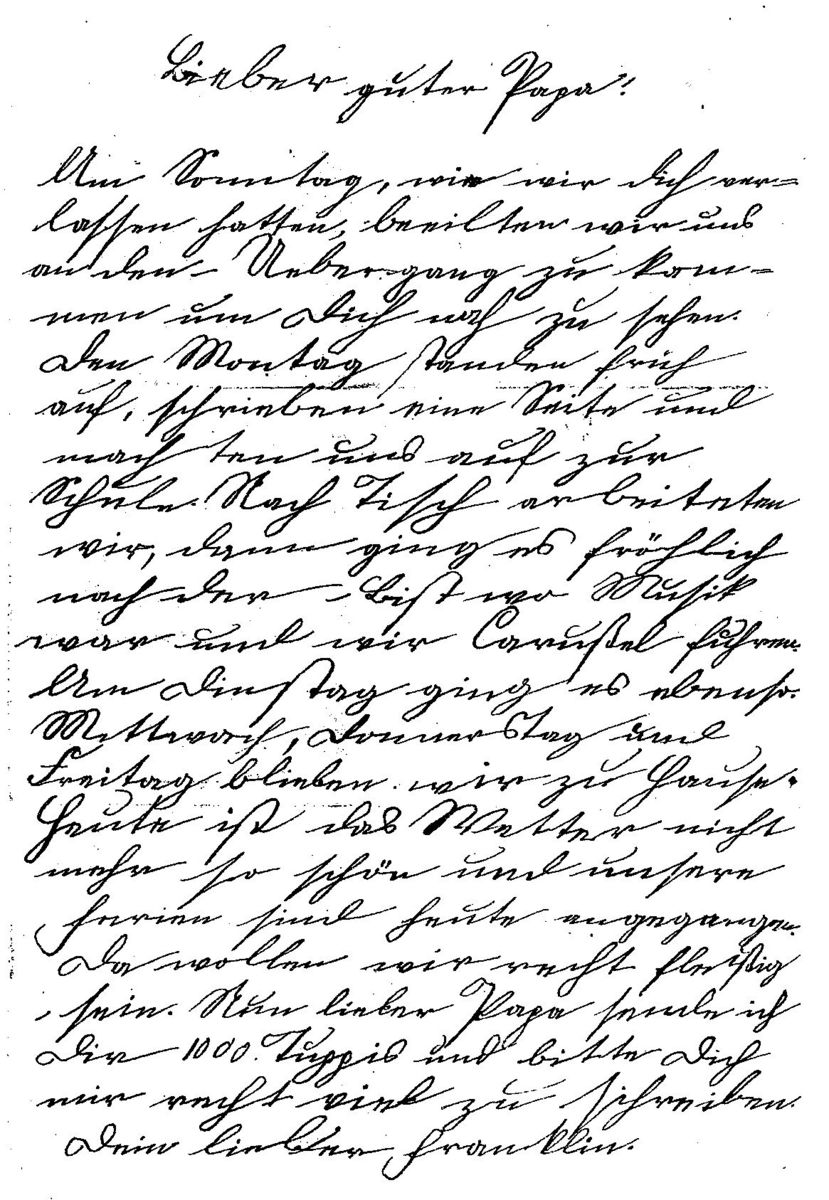 Lieber guter Papa!
Am Sonntag, wie wir Dich ver=
lassen hatten, beeilten wir uns
an den Uebergang zu kom=
men um Dich noch zu sehen.
Den Montag standen früh
auf, schrieben eine Seite und
mach ten uns auf zur
Schule. Nach Tisch arbeiteten
wir, dann ging es fröhlich
nach der List wo Musik
war und wir Carußel fuhren.
Am Dinstag ging es ebenso.
Mittwoch, Donnerstag und
Freitag blieben wir zu Hause.
Heute ist das Wetter nicht
mehr so schön und unsere
Ferien sind heute angegangen.
Da wollen wir recht fleißig
sein. Nun lieber Papa sende ich
Dir 1000. Tuppis und bitte Dich
mir recht viel zu schreiben.
Dein lieber Franklin.